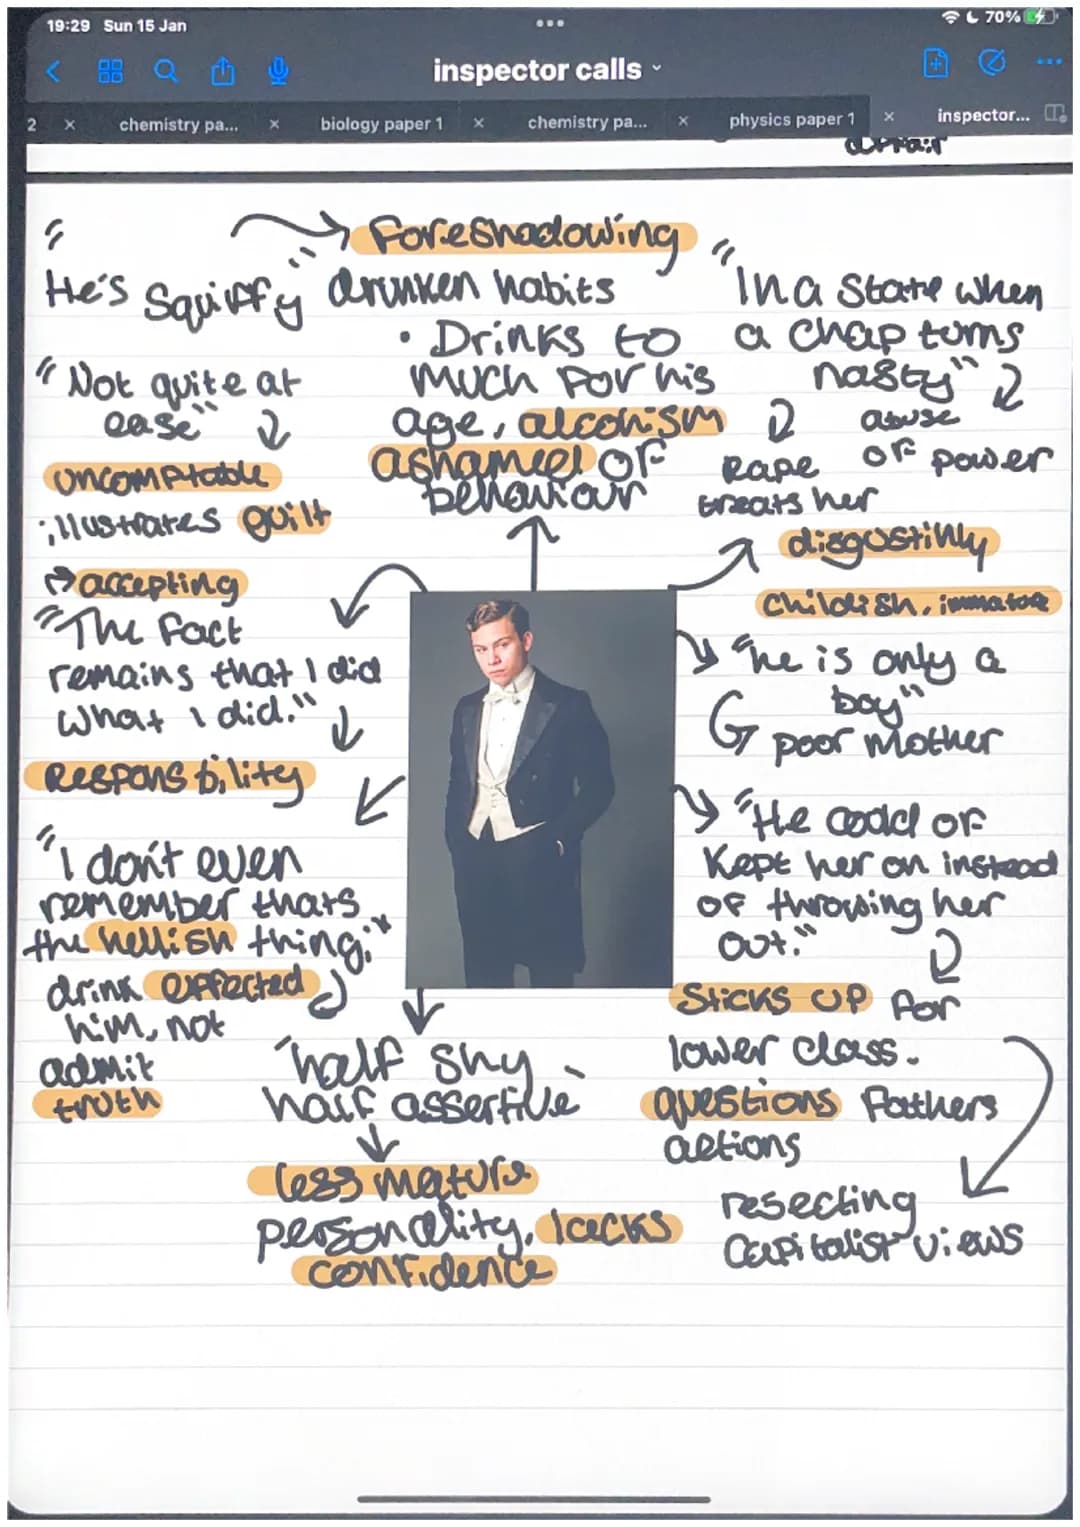 19:29 Sun 15 Jan
70%
inspector calls
2
chemistry pa...
biology paper 1
chemistry pa...
physics paper 1
inspector...
affair
"
He's Squiffy"
Foreshadowing
drunken habits
• Drinks to
much for his
age, alcohism
ashamed of
behaviour
"In a state when
a chap turns
nasty"
abuse
of power
Rape
treats her
disgustinly
childish, immature
"Not quite at
ease"
uncomptable
illustrates guilt
accepting
"The fact
remains that I did
what I did."
Responsibility
"he is only a
boy"
poor mother
"I don't even
remember thats
the hellish thing."
drink effected
him, not
admit
truth
"He could of
kept her on instead
of throwing her
out."
Sticks up for
lower class.
questions fathers
actions
resecting
capitalist views
"half shy
half assertive"
less mature
personality, lacks
confidence